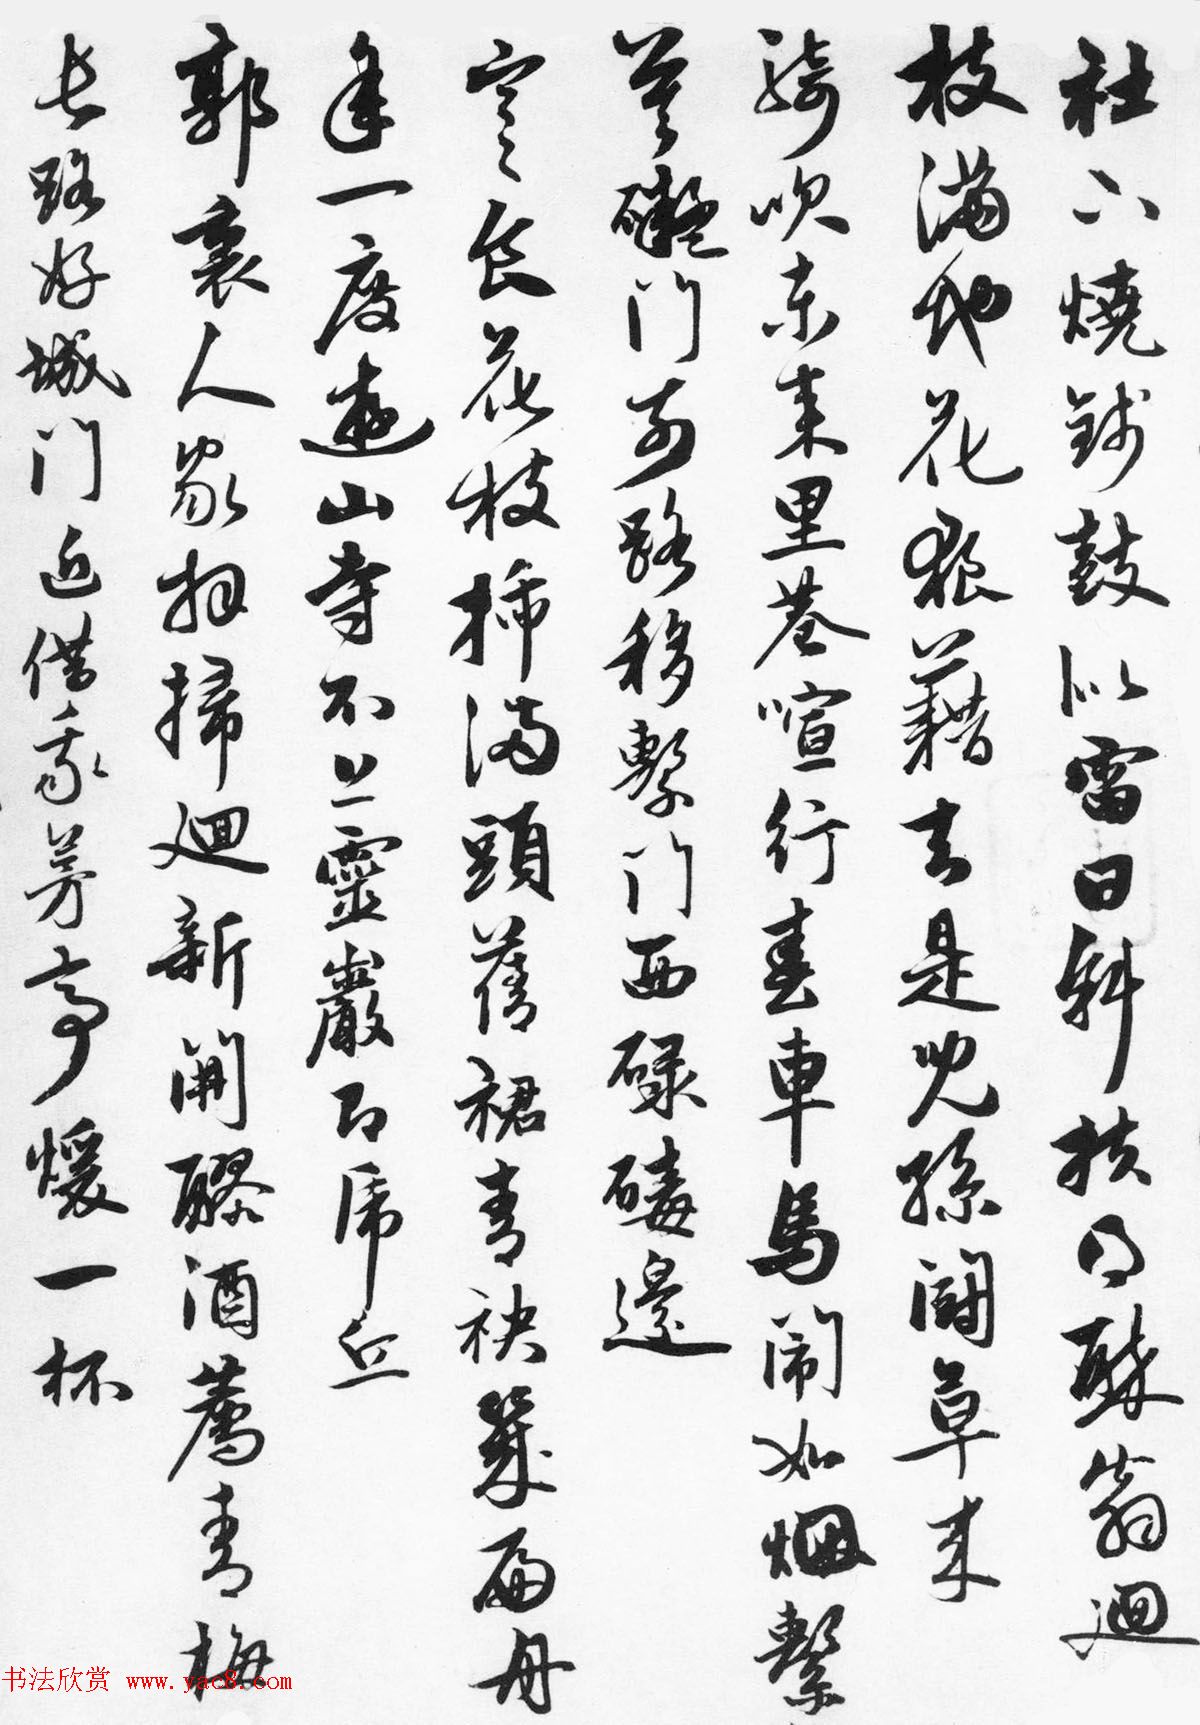 社下燒錢鼓似雷日斜扶得醉翁迴
枝滿地花狼藉知是兒孫鬪草來
騎吹東來里巷喧行春車馬鬧如烟繫
莫礙門前路移繫門西碌碡邊
寒食花枝插滿頭蒨裙青袂幾扁舟
年一度遊山寺不上靈巖即虎丘
郭裏人家拜掃迴新開醪酒薦青梅
長路好城門近借我茅亭煖一杯
书法欣赏 www.yac8.com